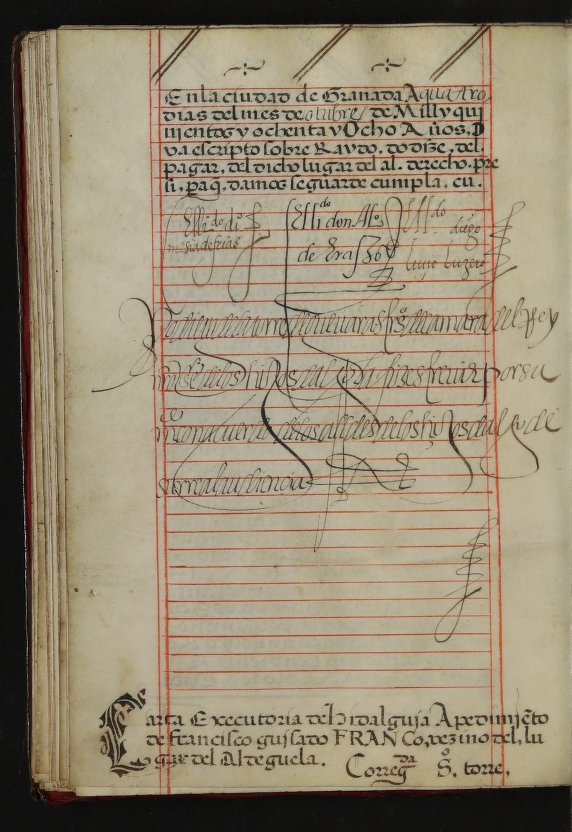 En la ciudad de Granada A quatro
dias del mes de otubre, de Mill y qui
nientos y ochenta y Ocho Años, D
va escripto sobre Raydo. do dize, del
pagar, del dicho lugar del al. derecho. pre
si, paq, damos se guarde cumpla. eu.
Ell. do di
mesia de frias
Ell. do don Al.o
de Eraso
Ell. do diego
del Rey
nro señor de los hijos dalgo la fize screuir por su
mdo con acuerdo de los alldes de los hijos dalgo de
su real audiencia
Carta Executoria de hidalguia A pedimiēto
de francisco guisado FRANCo, vezino del, lu
gar del Alteguela.
Corregda S.o torre.